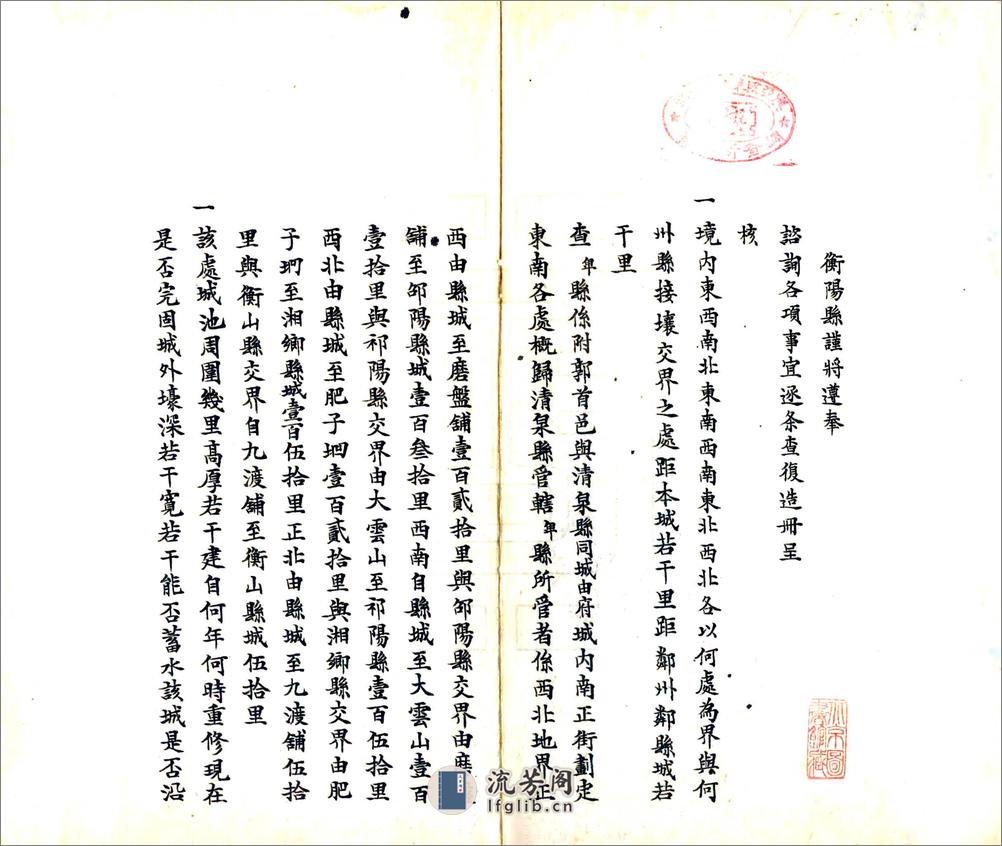 衡陽縣謹將遵奉
諮詢各項事宜逐条查復造冊呈
核
一境内東西南北東南西南東北西北各以何處為界與何
州縣接壤交界之處距本城若干里距鄰州鄰縣城若
干里
查卑縣係附郭首邑與清泉縣同城由府城内南正街劃定
東南各處概歸清泉縣管轄卑縣所管者係西北地界正
西由縣城至磨盤舖壹百貳拾里與邵陽縣交界由磨
舖至邵陽縣城壹百叁拾里西南自縣城至大雲山壹百
壹拾里與祁陽縣交界由大雲山至祁陽縣壹百伍拾里
西北由縣城至肥子坰壹百貳拾里與湘鄉縣交界由肥
子坰至湘鄉縣城壹百伍拾里正北由縣城至九渡舖伍拾
里與衡山縣交界自九渡舖至衡山縣城伍拾里
一該處城池周圍幾里高厚若干建自何年何時重修現在
是否完固城外壕深若干寬若干能否蓄水該城是否沿
流芳阁
lfglib.cn